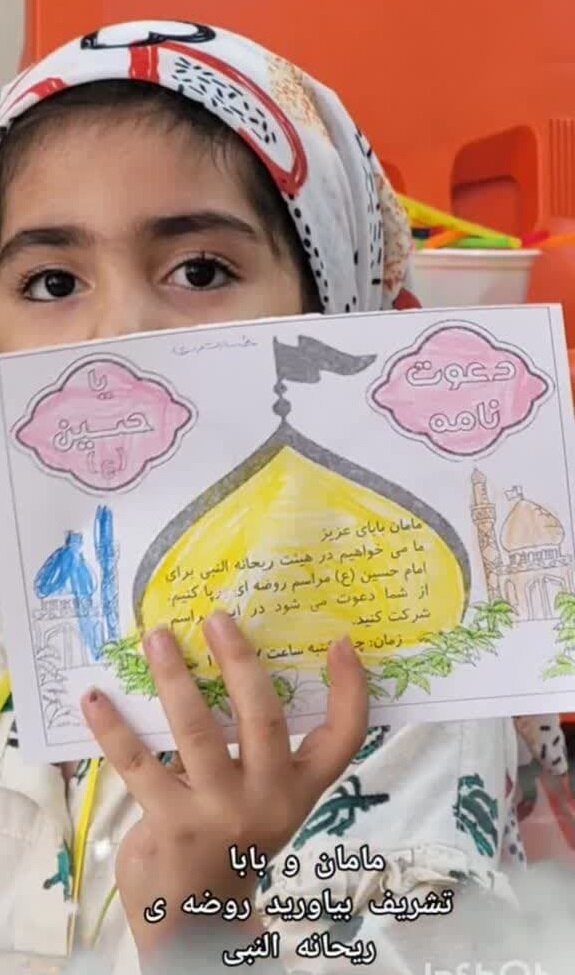 دعوت
نامه
یا
حسین
(ع)
مامان بابای عزیز
ما می خواهیم در هیئت ریحانه النبی برای
امام حسین (ع) مراسم روضه ای کنیم.
از شما دعوت می شود در این مراسم
شرکت کنید.
زمان: ساعت
مامان و بابا
تشریف بیاورید روضه ی
ریحانه النبی